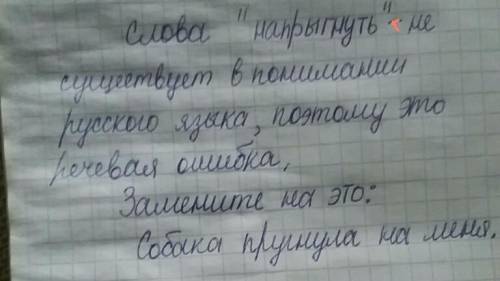 Слова "напрыгнуть" не
существует в понимании
русского языка, поэтому это
речевая ошибка,
Замените на это:
Собака пругнула на меня.